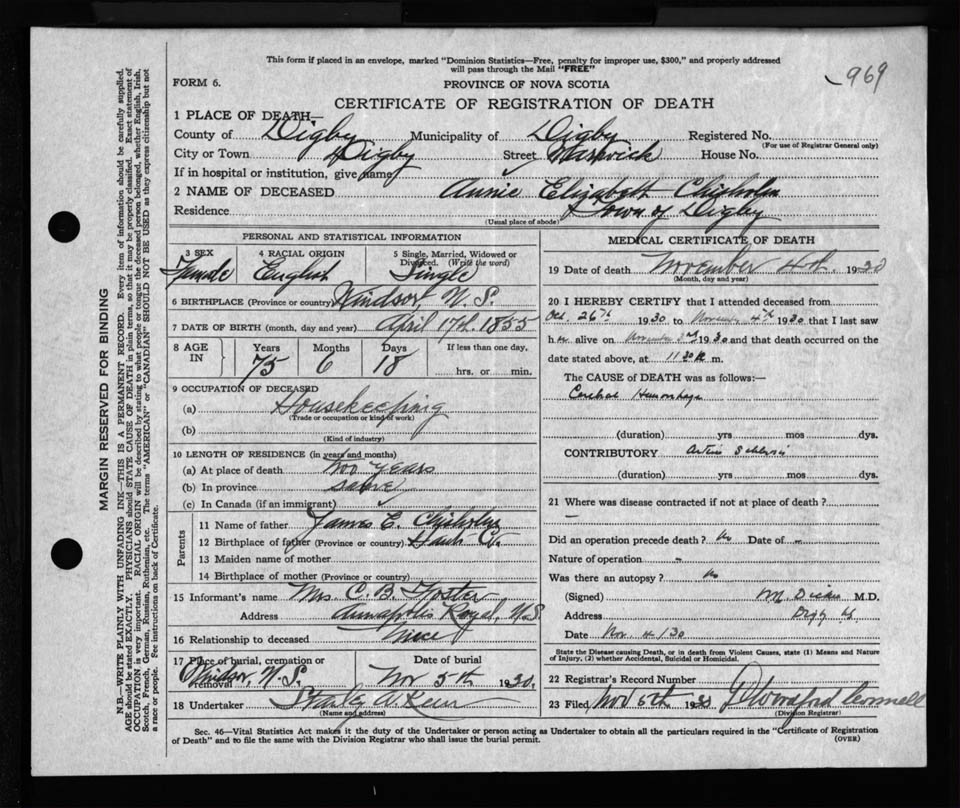 This form if placed in an envelope, marked "Dominion Statistics—Free, penalty for improper use, $300," and properly addressed
will pass through the Mail "FREE"
969
FORM 6.
PROVINCE OF NOVA SCOTIA
CERTIFICATE OF REGISTRATION OF DEATH
1 PLACE OF DEATH—
County of Digby Municipality of Digby Registered No.
(For use of Registrar General only)
City or Town Digby Street Warwick House No.
If in hospital or institution, give name
2 NAME OF DECEASED Annie Elizabeth Chisholm
Residence Town of Digby
(Usual place of abode)
PERSONAL AND STATISTICAL INFORMATION
3 SEX 4 RACIAL ORIGIN 5 Single, Married, Widowed or Divorced. (Write the word)
Female English Single
6 BIRTHPLACE (Province or country) Windsor, N.S.
7 DATE OF BIRTH (month, day and year) April 17th. 1855
8 AGE IN Years Months Days If less than one day.
75 6 18 hrs. or min.
9 OCCUPATION OF DECEASED
(a) Housekeeping
(Trade or occupation or kind of work)
(b)
(Kind of industry)
10 LENGTH OF RESIDENCE (in years and months)
(a) At place of death two years
(b) In province
(c) In Canada (if an immigrant)
Parents
11 Name of father James E. Chisholm
12 Birthplace of father (Province or country) Hants Co.
13 Maiden name of mother
14 Birthplace of mother (Province or country)
15 Informant's name Mrs C. B. Foster
Address Annapolis Royal, N.S.
16 Relationship to deceased Niece
17 Place of burial, cremation or removal Date of burial
Windsor, N.S. Nov 5th 1930.
18 Undertaker
(Name and address)
MEDICAL CERTIFICATE OF DEATH
19 Date of death November 4th. 1930
(Month, day and year)
20 I HEREBY CERTIFY that I attended deceased from
Oct. 26th 1930 to November 4th 1930 that I last saw
her alive on November 3rd 1930 and that death occurred on the
date stated above, at 11 30 m.
The CAUSE of DEATH was as follows:—
Cerebral Hemorrhage
(duration) yrs mos dys.
CONTRIBUTORY
(duration) yrs mos dys.
21 Where was disease contracted if not at place of death?
—
Did an operation precede death? No Date of –
Nature of operation –
Was there an autopsy? No
(Signed) M.D.
Address Digby
Date Nov. 4/30
State the Disease causing Death, or in death from Violent Causes, state (1) Means and Nature
of Injury, (2) whether Accidental, Suicidal or Homicidal.
22 Registrar's Record Number
23 Filed, Nov 6th 1930
(Division Registrar)
Sec. 46—Vital Statistics Act makes it the duty of the Undertaker or person acting as Undertaker to obtain all the particulars required in the "Certificate of Registration
of Death" and to file the same with the Division Registrar who shall issue the burial permit.
(OVER)
MARGIN RESERVED FOR BINDING
N.B.—WRITE PLAINLY WITH UNFADING INK—THIS IS A PERMANENT RECORD. Every item of information should be carefully supplied.
AGE should be stated EXACTLY. PHYSICIANS should STATE CAUSE OF DEATH in plain terms, so that it may be properly classified. Exact statement of
OCCUPATION is very important. RACIAL ORIGIN will be described by stating to what people or tongue the deceased person belonged, whether English, Irish,
Scotch, French, German, Russian, Ruthenian, etc. The terms "AMERICAN" or "CANADIAN" SHOULD NOT BE USED as they express citizenship but not
a race or people. See instructions on back of Certificate.